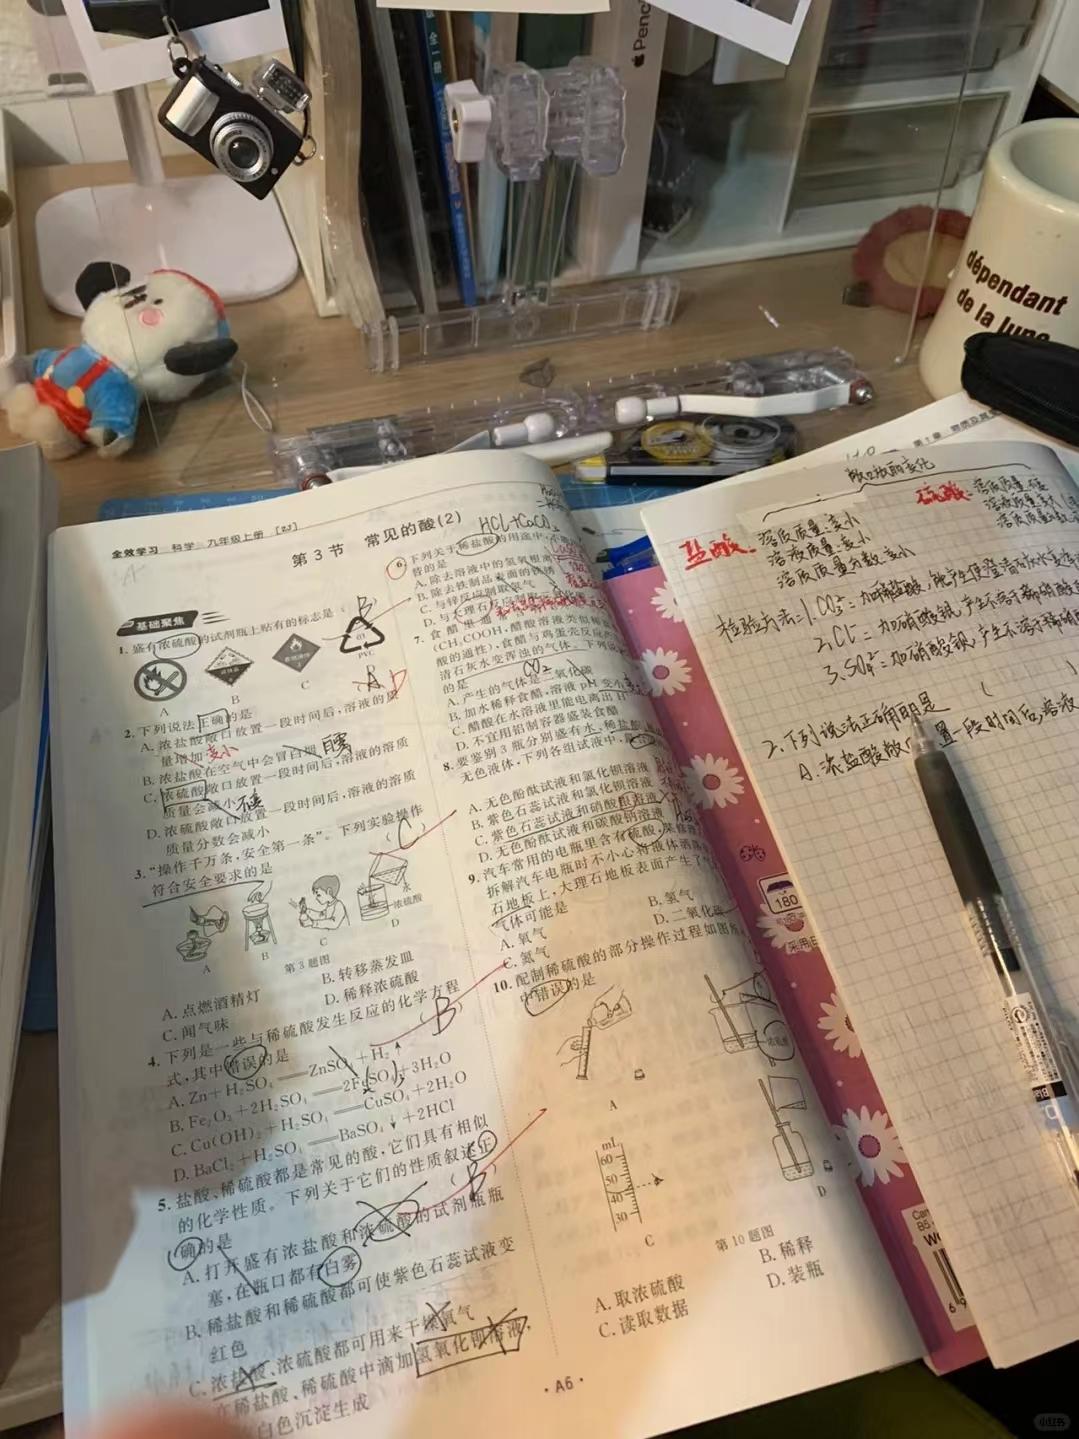 Penc
全一册
dépendant
de la lune
全效学习 科学 九年级上册 [ZJ]
第3节 常见的酸(2)
基础聚焦
1. 盛有浓硫酸的试剂瓶上贴有的标志是
B
PVC
A B C
2. 下列说法正确的是
A. 浓盐酸敞口放置一段时间后,溶液的质
量增加 变小
B. 浓盐酸在空气中会冒白烟 白雾
C. 浓硫酸敞口放置一段时间后,溶液的溶质
质量会减小 不变
D. 浓硫酸敞口放置一段时间后,溶液的溶质
质量分数会减小
3. “操作千万条,安全第一条”。下列实验操作
符合安全要求的是
(C)
水
浓硫酸
A B C D
第3题图
A. 点燃酒精灯
B. 转移蒸发皿
C. 闻气味
D. 稀释浓硫酸
4. 下列是一些与稀硫酸发生反应的化学方程
式,其中错误的是
(B)
A. Zn+H₂SO₄══ZnSO₄+H₂↑
B. Fe₂O₃+2H₂SO₄══2FeSO₄+3H₂O
C. Cu(OH)₂+H₂SO₄══CuSO₄+2H₂O
D. BaCl₂+H₂SO₄══BaSO₄↓+2HCl
5. 盐酸、稀硫酸都是常见的酸,它们具有相似
的化学性质。下列关于它们的性质叙述正
确的是
(B)
A. 打开盛有浓盐酸和浓硫酸的试剂瓶瓶
塞,在瓶口都有白雾
B. 稀盐酸和稀硫酸都可使紫色石蕊试液变
红色
C. 浓盐酸、浓硫酸都可用来干燥氧气
在稀盐酸、稀硫酸中滴加氢氧化钡溶液,
白色沉淀生成
HCl+CaCO₃
6. 下列关于稀盐酸的用途中,不
替的是
A. 除去溶液中的氢氧根离
B. 除去铁制品表面的铁锈
C. 与锌反应制取氢气
D. 与大理石反应制取二氧化
7. 食醋里通
(CH₃COOH,醋酸溶液类似稀
酸的通性),食醋与鸡蛋壳反应产
清石灰水变浑浊的气体。下列说
的是
CO₂
A. 产生的气体是二氧化碳
B. 加水稀释食醋,溶液 pH 变小
C. 醋酸在水溶液里能电离出 H
D. 不宜用铝制容器盛装食醋
8. 要鉴别3瓶分别盛有水、稀盐酸
无色液体,下列各组试液中,最
A. 无色酚酞试液和氯化钡溶液
B. 紫色石蕊试液和氯化钡溶液
C. 紫色石蕊试液和硝酸钡溶液
D. 无色酚酞试液和碳酸钠溶液
9. 汽车常用的电瓶里含有硫酸,某修理
拆解汽车电瓶时不小心将液体洒落
石地板上,大理石地板表面产生了气
气体可能是
A. 氧气
B. 氢气
C. 氮气
D. 二氧化碳
10. 配制稀硫酸的部分操作过程如图所
中错误的是
A
mL
60
50
40
30
C
D
第10题图
A. 取浓硫酸
B. 稀释
C. 读取数据
D. 装瓶
·A6·
敞口放的变化
盐酸:
溶质质量:变小
溶液质量:变小
溶质质量分数:变小
硫酸:
溶质质量:不变
溶液质量:变大
检验方法:1. CO₃²⁻:加稀盐酸,能产生使澄清石灰水变浑
2. Cl⁻:加硝酸银,产生不溶于稀硝酸
3. SO₄²⁻:加硝酸钡,产生不溶于稀硝
2. 下列说法正确的是 ( )
A. 浓盐酸敞 置一段时间后,溶液
180
小红书